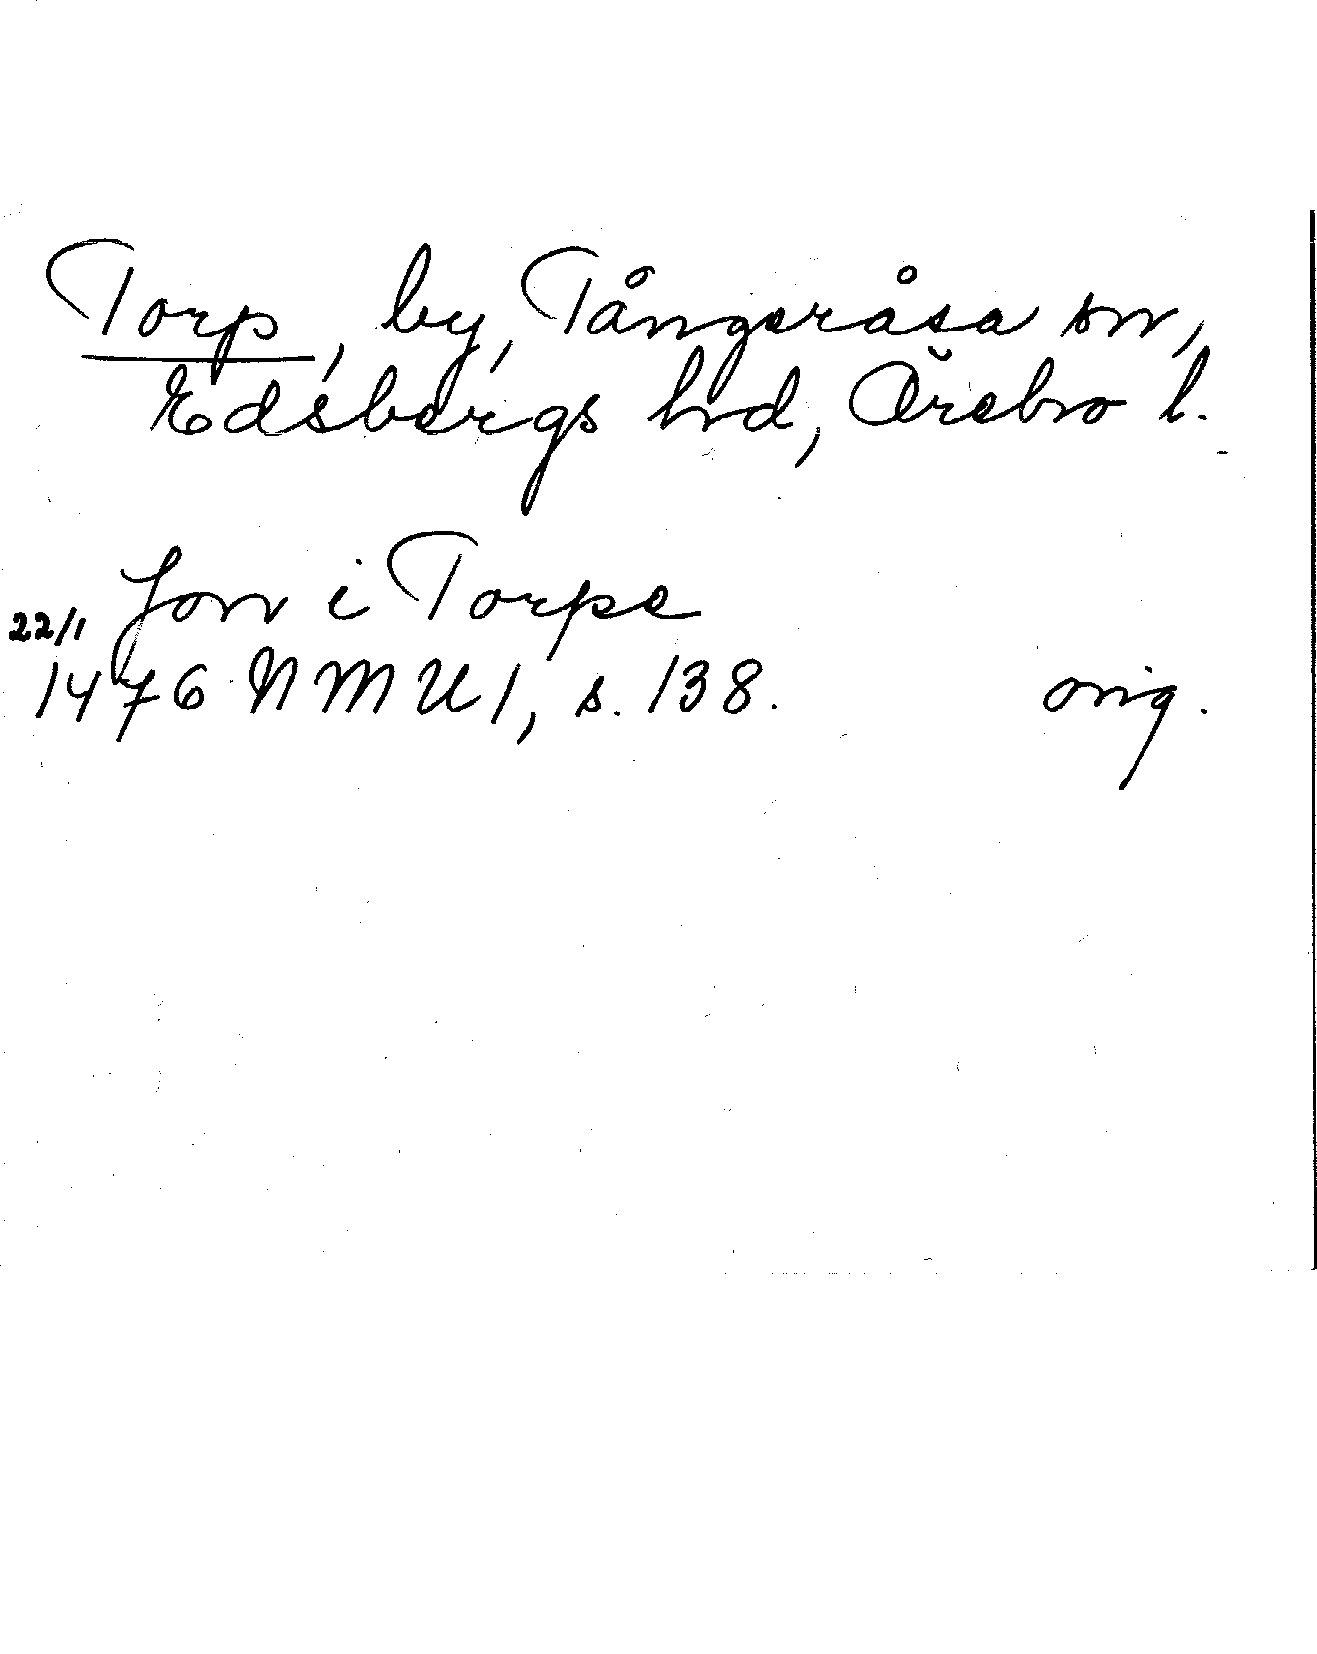 Torp, by, Tångeråsa sn,
Edsbergs hrd, Örebro l.
Jon i Torpe
22/1
1476 NMU 1, s. 138. orig.